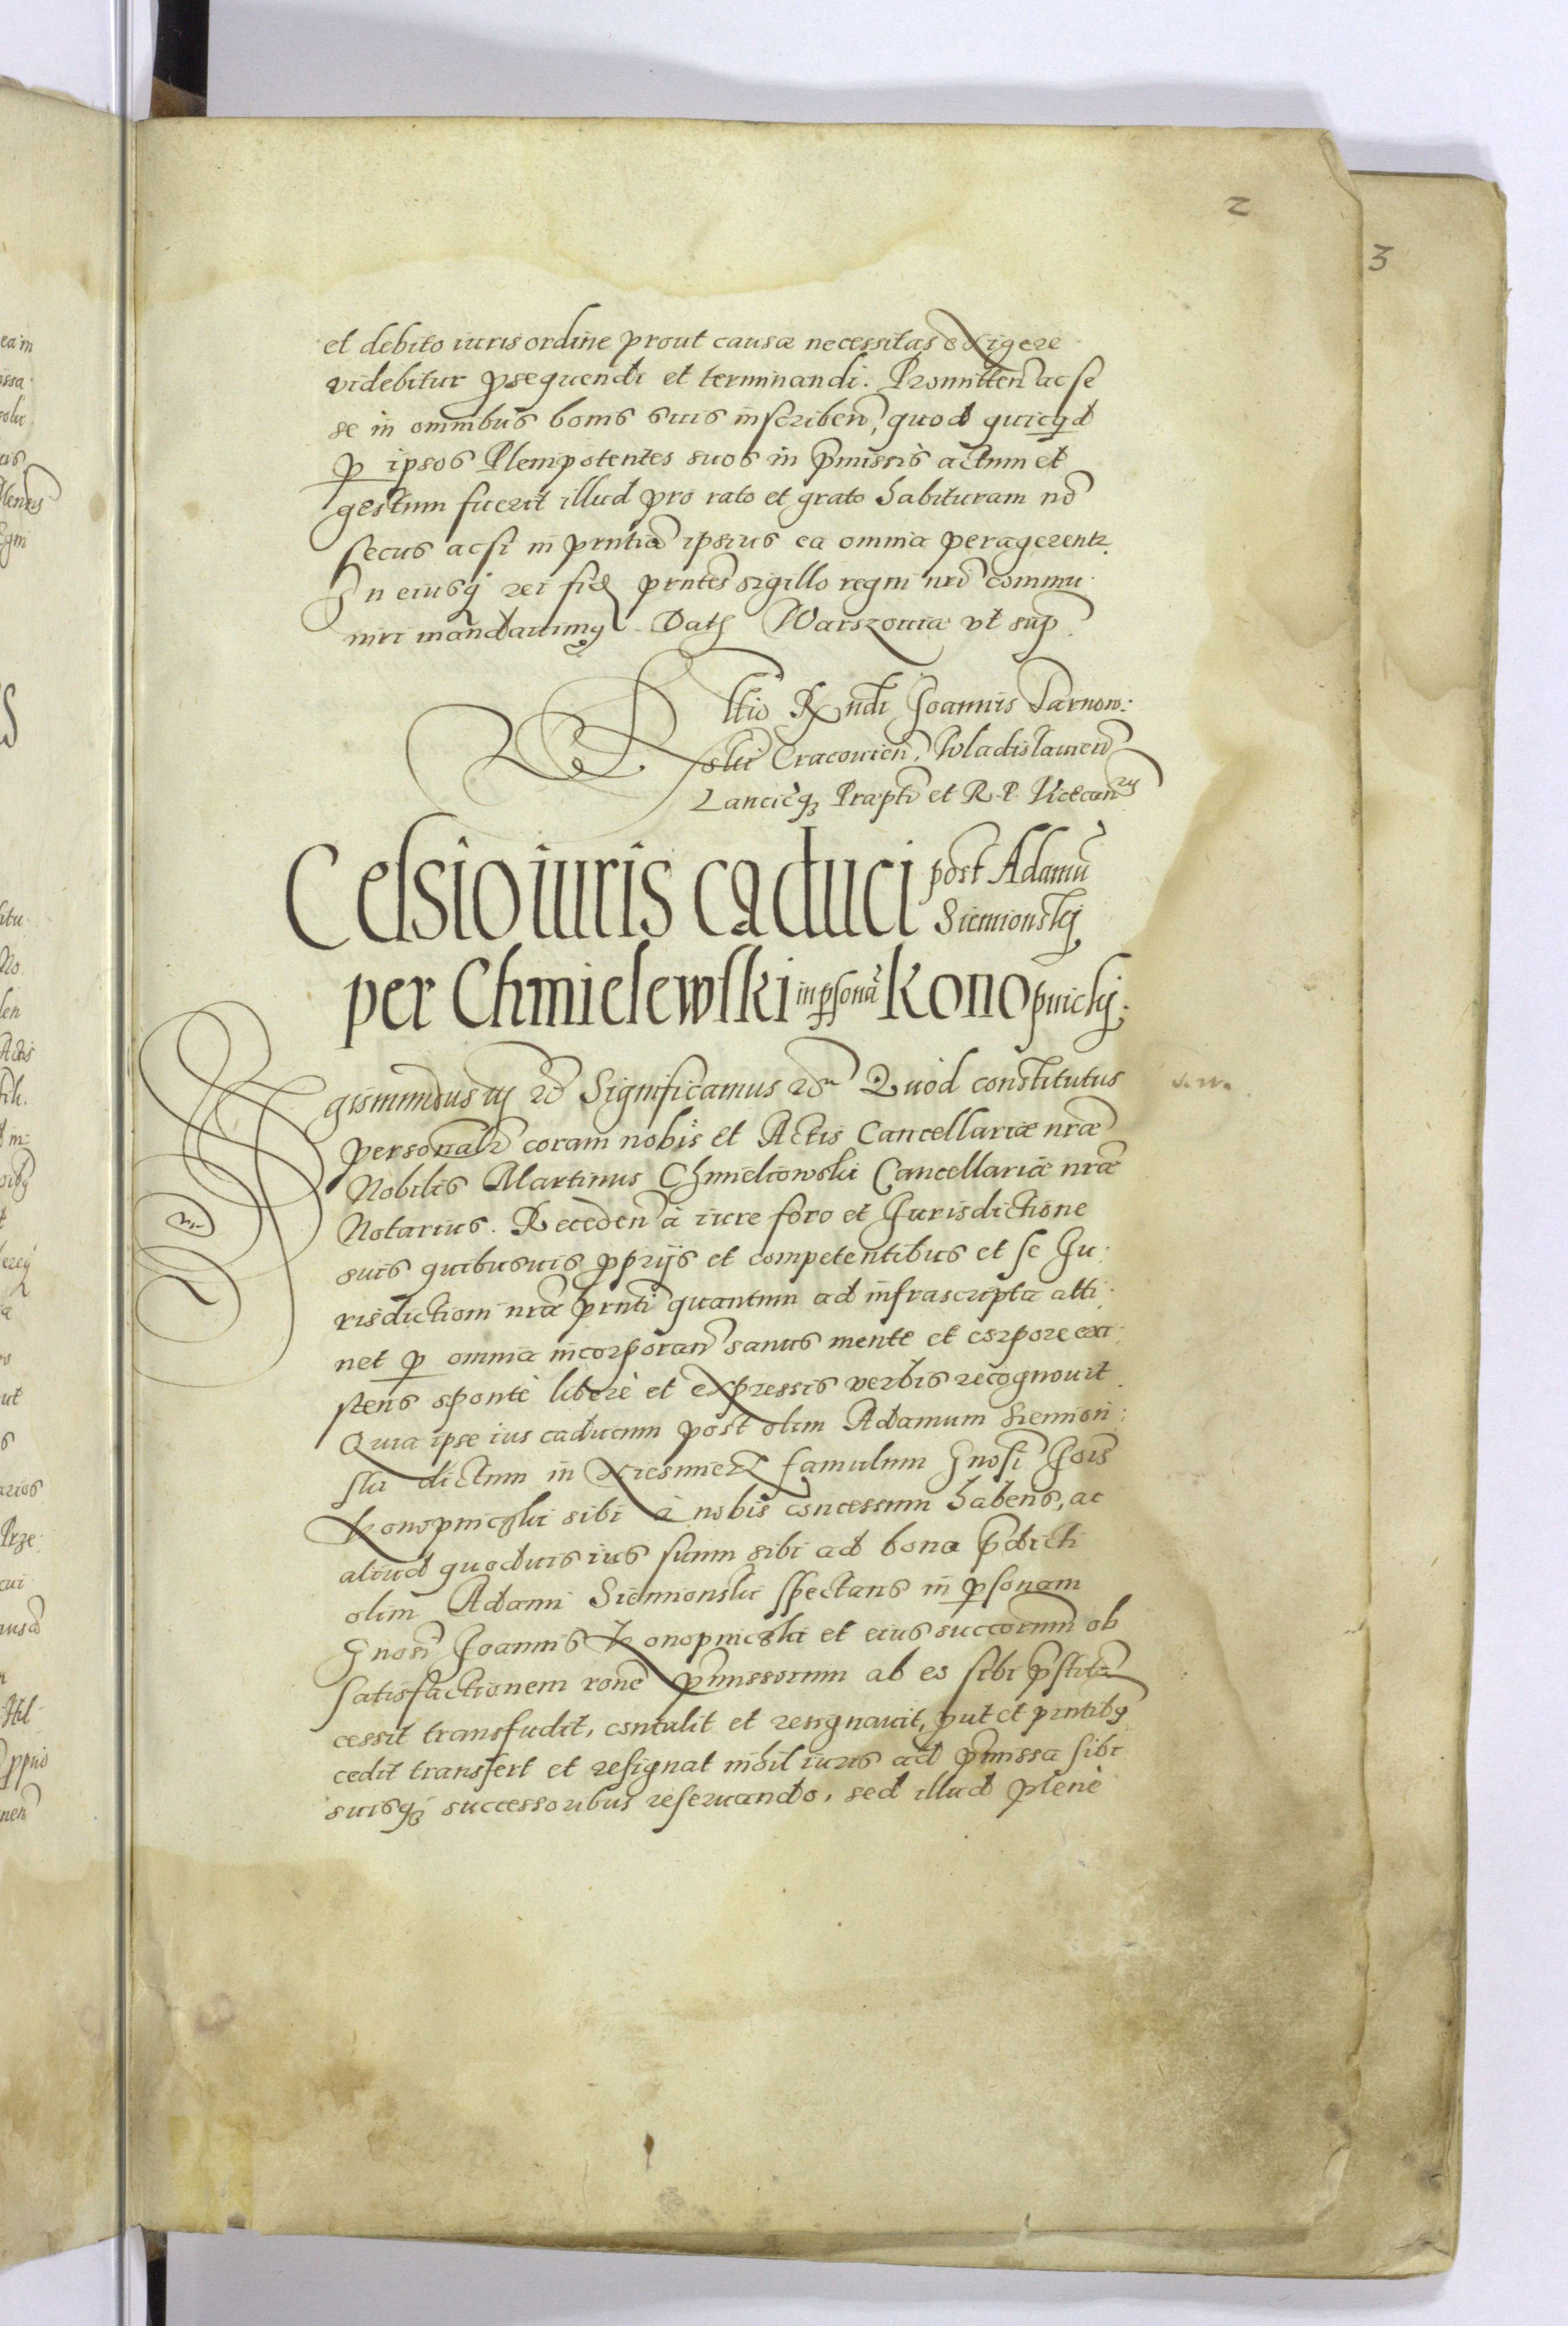 2
3
et debito iuris ordine prout causæ necessitas exigere
videbitur ꝓsequendi et terminandi. Promitteñ ac se
se in omnibus bonis suis inscribeñ, quod quicqd
ꝑ ipsos Plenipotentes suos in p̃missis actum et
gestum fuerit illud pro rato et grato habituram nõ
secus ac si in pñtia ipsius ea omnia peragerentr.
In eiusq̃ rei fidẽ pñtes sigillo regni nr̃i commu
niri mandauimꝰ. Datʒ Warszouiæ vt sup̃
Rltio Rx̃ndi Joannis Tarnow:
skii Cracouieñ, Wladislauieñ
Lancicq̃ Præpti et R. P. Vicecanrij
Celsio iuris caduci post Adamũ
Siemionskj
per Chmielewski in ꝑsonã Konopnickj:
Sigismundus iij ec̃ Significamus ec̃ Quod constitutus
personalr̃ coram nobis et Actis Cancellariæ nr̃æ
Nobilis Martinus Chmieliowski Cancellariæ nr̃æ
Notarius. Recedeñ à iure foro et Jurisdictione
suis quibusuis ꝓprijs et competentibus et se Ju:
risdictioni nr̃æ pr̃nti quantum ad infrascripta atti:
net ꝑ omnia incorporañ sanus mente et corpore exi
stens spontè liberè et expressis verbis recognouit
Quia ipse ius caducum post olim Adamum Siemion:
ski dictum in Kiesmierz famulum Gnosi Jois
Konopnicski sibi à nobis concessum habens, ac
aliud quoduis ius suum sibi ad bona p̃dicti
olim Adami Siemionski spectans in ꝑsonam
Gnosi Joannis Konopnicski et eius succorum ob
satisfactionem rone p̃missorum ab eo sibi p̃stitã
cessit transfudit, contulit et resignauit, ꝓut et pñtibꝰ
cedit transfert et resignat nihil iuris ad p̃missa sibi
suisq̃ successoribus reseruando, sed illud plenè